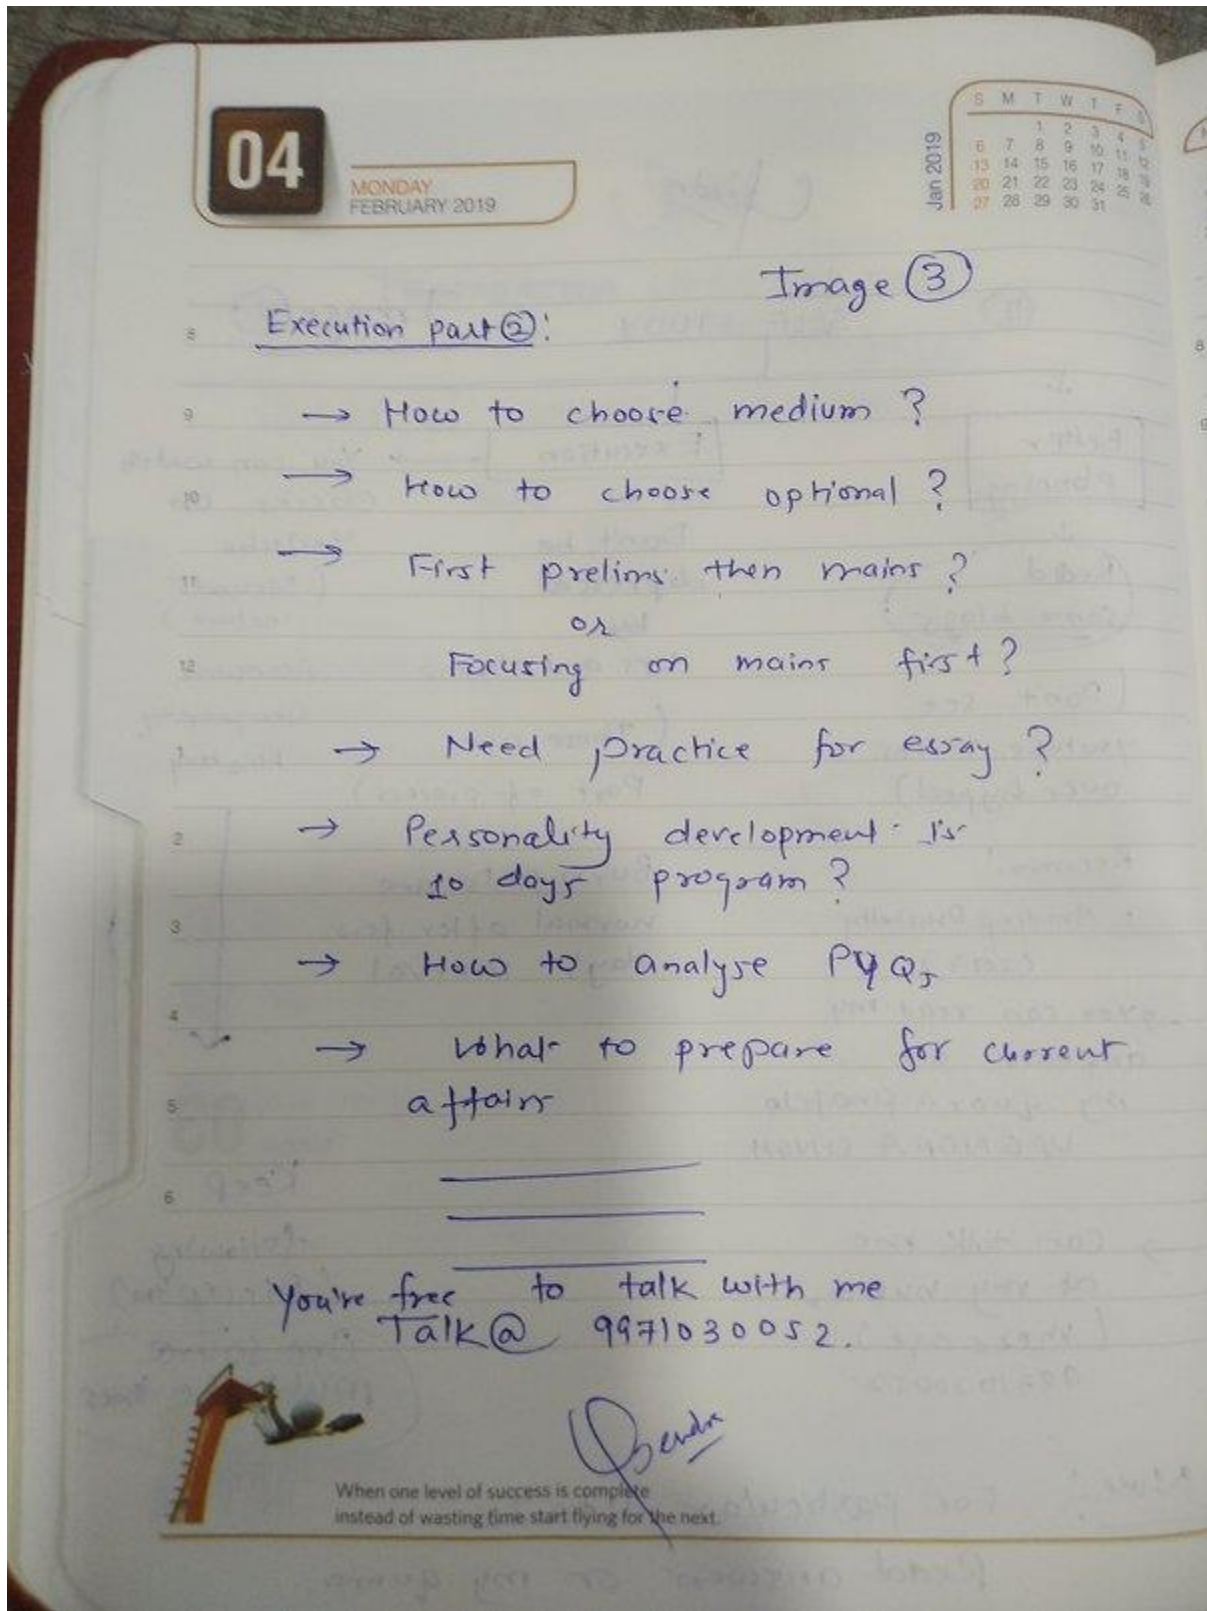 04
MONDAY
FEBRUARY 2019
Jan 2019
S M T W T F S
1 2 3 4 5
6 7 8 9 10 11 12
13 14 15 16 17 18 19
20 21 22 23 24 25 26
27 28 29 30 31
Image 3
8 Execution part 2:
9 → How to choose medium ?
10 → How to choose optional ?
11 → First prelims then mains ?
or
12 Focusing on mains first ?
1 → Need practice for essay ?
2 → Personality development is
10 days program ?
3 → How to analyse PYQs
4 → What to prepare for current
5 affairs
6
You're free to talk with me
Talk@ 9971030052.
When one level of success is complete
instead of wasting time start flying for the next.